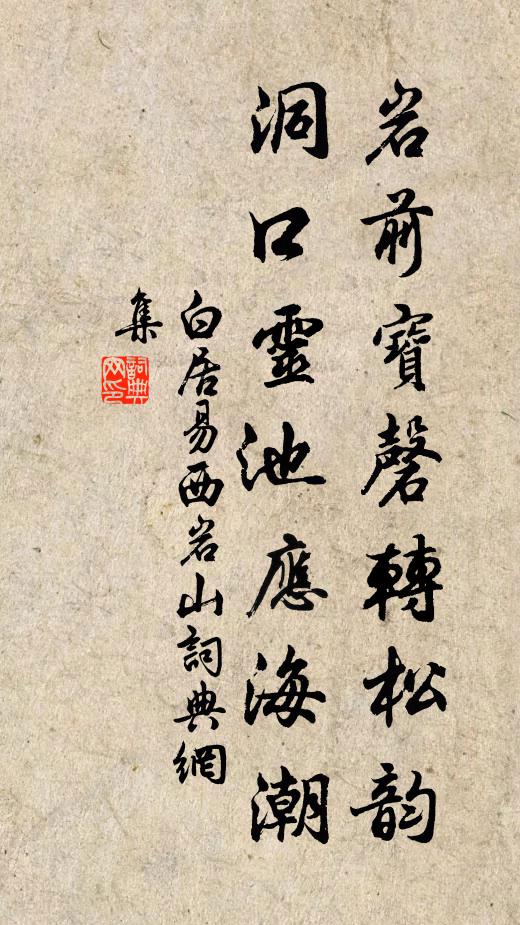 岩前寶磬轉松韵
洞口靈池應海潮
白居易西岩山詞典網
集
詞典网印